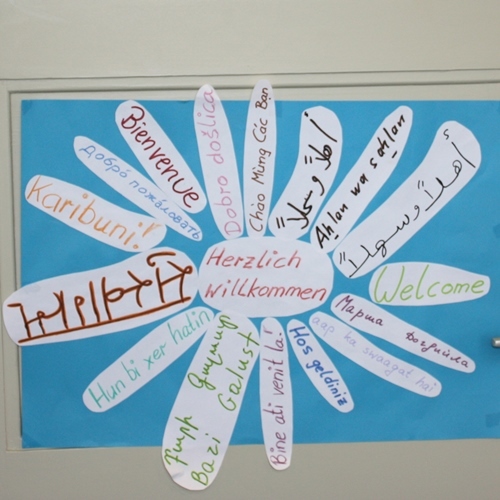 Herzlich
willkommen
Karibuni!
добро́ пожа́ловать
Bienvenue
Dobro došlica
Chao Mừng Các Bạn
أهلاً وسهلاً
Ahlan wa sahlan
أهلاً وسهلاً
Welcome
Марша догийла
aap ka swaagat hai
Hos geldiniz
Bine ati venit la!
Բարի գալուստ
Bari Galust
Hun bi xer hatin